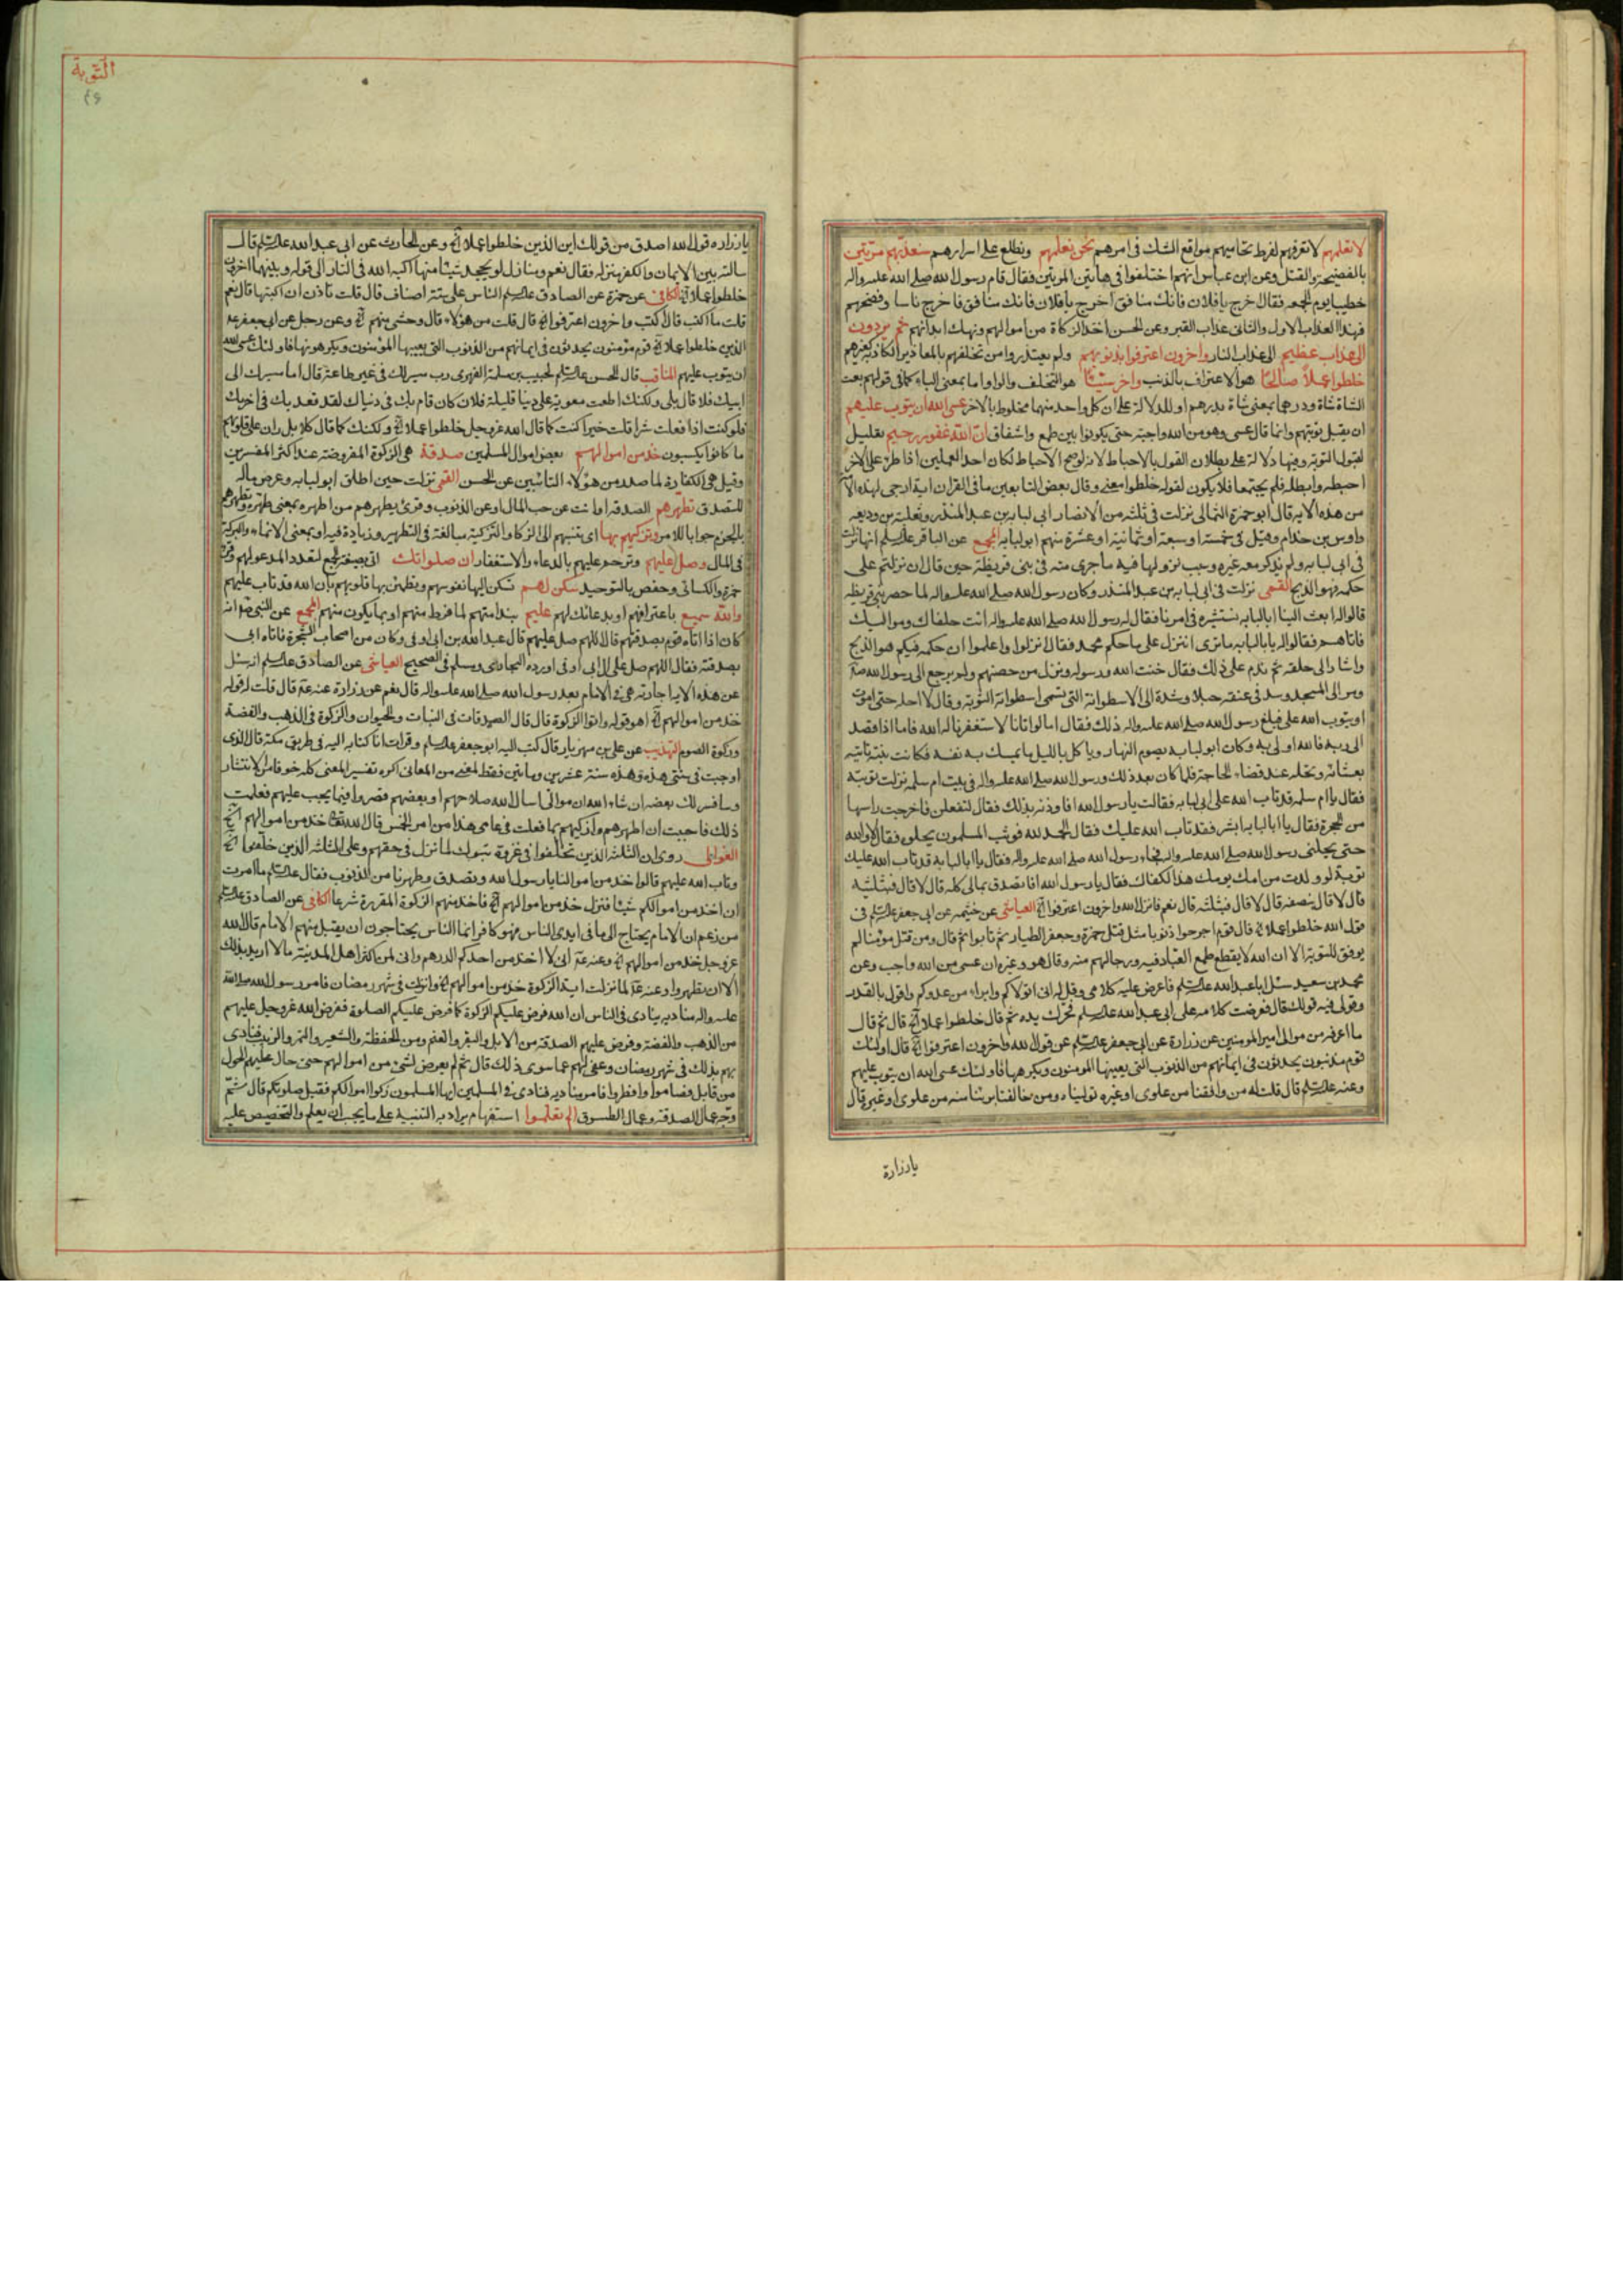 لا تعلمهم لا تعرفهم لفرط تحاميهم مواقع الشك فى امرهم نحن نعلمهم ونطلع على اسرارهم سنعذبهم مرتين
بالفضيحة والقتل وعن ابن عباس انهم اختلفوا فى هاتين المرتين فقال قام رسول الله صلى الله عليه واله
خطيبا يوم الجمعه فقال اخرج يا فلان فانك منافق اخرج يا فلان فانك منافق فاخرج ناسا وفضحهم
فهذا العذاب الاول والثانى عذاب القبر وعن الحسن اخذ الزكاة من اموالهم ونهك ابدانهم ثم يردون
الى عذاب عظيم الى عذاب النار واخرون اعترفوا بذنوبهم ولم يعتذروا من تخلفهم بالمعاذير الكاذبة كغيرهم
خلطوا عملا صالحا هو الاعتراف بالذنب واخر سيئا هو التخلف والواو اما بمعنى الباء كما فى قولهم بعت
الشاة شاة ودرهما بمعنى شاة بدرهم او للدلالة على ان كل واحد منهما مخلوط بالاخر عسى الله ان يتوب عليهم
ان يقبل توبتهم وانما قال عسى وهو من الله واجبة حتى يكونوا بين طمع واشفاق ان الله غفور رحيم تعليل
لقبول التوبة وفيها دلالة على بطلان القول بالاحباط لانه لو صح الاحباط لكان احد العملين اذا طرء على الاخر
احبطه وابطله فلم يجتمعا فلا يكون لقوله خلطوا معنى وقال بعض التابعين ما فى القران اية ارجى لهذه الامة
من هذه الاية قال ابو حمزة الثمالى نزلت فى ثلثة من الانصار ابى لبابه بن عبد المنذر وثعلبة بن وديعه
واوس بن حذام وقيل فى خمسة او سبعة او ثمانية او عشرة منهم ابو لبابه المجمع عن الباقر عليه السلم انها نزلت
فى ابى لبابه ولم يذكر معه غيره وسبب نزولها فيه ما جرى منه فى بنى قريظة حين قال ان نزلتم على
حكمه فهو الذبح القمى نزلت فى ابى لبابه بن عبد المنذر وكان رسول الله صلى الله عليه واله لما حصر بنى قريظه
قالوا له ابعث الينا ابا لبابه نستشيره فى امرنا فقال له رسول الله صلى الله عليه واله ائت حلفاك ومواليك
فاتاهم فقالوا له يا ابا لبابه ما ترى اننزل على ما حكم محمد فقال انزلوا واعلموا ان حكمه فيكم هو الذبح
واشار الى حلقه ثم ندم على ذلك فقال خنت الله ورسوله ونزل من حصنهم ولم يرجع الى رسول الله ص
ومر الى المسجد وشد فى عنقه حبلا وشده الى الاسطوانة التى تسمى اسطوانة التوبة وقال لا احله حتى اموت
او يتوب الله على فبلغ رسول الله صلى الله عليه واله ذلك فقال اما لو اتانا لاستغفرنا له الله فاما اذا قصد
الى ربه فالله اولى به وكان ابو لبابه يصوم النهار وياكل بالليل ما يمسك به نفسه فكانت بنته تاتيه
بعشائه وتحله عند قضاء الحاجة فلما كان بعد ذلك ورسول الله صلى الله عليه واله فى بيت ام سلمه نزلت توبته
فقال يا ام سلمه قد تاب الله على ابى لبابه فقالت يا رسول الله افاوذنه بذلك فقال لتفعلن فاخرجت راسها
من الحجرة فقال يا ابا لبابه ابشر فقد تاب الله عليك فقال الحمد لله فوثب المسلمون يحلونه فقال لا والله
حتى يحلنى رسول الله صلى الله عليه واله فجاء رسول الله صلى الله عليه واله فقال يا ابا لبابه قد تاب الله عليك
توبة لو ولدت من امك يومك هذا لكفاك فقال يا رسول الله افاتصدق بمالى كله قال لا قال فبثلثيه
قال لا قال بنصفه قال لا قال فبثلثه قال نعم فانزل الله واخرون اعترفوا الخ العياشى عن خيثمه عن ابى جعفر عليه السلم فى
قول الله خلطوا عملا الخ قال قوم اجترحوا ذنوبا مثل قتل حمزة وجعفر الطيار ثم تابوا ثم قال ومن قتل مؤمنا لم
يوفق للتوبة الا ان الله لا يقطع طمع العباد فيه ورجائهم منه وقال هو وغيره ان عسى من الله واجب وعن
محمد بن سعيد سئل ابا عبد الله عليه السلم فاعرض عليه كلامى وقل له انى اتولاكم وابرا من عدوكم واقول بالقدر
وقولى فيه قولك قال فعرضت كلامه على ابى عبد الله عليه السلم فحرك يده ثم قال خلطوا عملا الخ قال ثم قال
ما اعرفه من موالى امير المومنين عن زرارة عن ابى جعفر عليه السلم عن قول الله واخرون اعترفوا الخ قال اولئك
قوم مذنبون يحدثون فى ايمانهم من الذنوب التى يعيبها المومنون ويكرهها فاولئك عسى الله ان يتوب عليهم
وعنه عليه السلم قال قلت له من وافقنا من علوى او غيره توليناه ومن خالفنا برئنا منه من علوى او غيره قال
يا زرارة
التوبة
يا زراره قول الله اصدق من قولك اين الذين خلطوا عملا الخ وعن الحارث عن ابى عبد الله عليه السلم قال
سالته بين الايمان والكفر منزله فقال نعم ومنازل لو يجحد شيئا منها اكبه الله فى النار الى قوله وبينهما اخرون
خلطوا عملا الخ الكافى عن حمزة عن الصادق عليه السلم الناس على ستة اصناف قال قلت تاذن ان اكتبها قال نعم
قلت ما اكتب قال اكتب واخرون اعترفوا الخ قال قلت من هؤلاء قال وحشى منهم الخ وعن رجل عن ابى جعفر
الذين خلطوا عملا الخ قوم مؤمنون يحدثون فى ايمانهم من الذنوب التى يعيبها المؤمنون ويكرهونها فاولئك عسى الله
ان يتوب عليهم المناقب قال الحسن عليه السلم لحبيب بن سلمة الفهرى رب سير لك فى غير طاعة قال اما سيرك الى
ابيك فلا قال بلى ولكنك اطعت معوية على دنيا قليلة فلان كان قام بك فى دنياك لقد قعد بك فى اخرتك
فلو كنت اذا فعلت شرا قلت خيرا كنت كما قال الله عز وجل خلطوا عملا الخ ولكنك كما قال كلا بل ران على قلوبهم
ما كانوا يكسبون خذ من اموالهم بعض اموال المسلمين صدقة هى الزكوة المفروضة عند اكثر المفسرين
وقيل هى الكفارة لما صدر من هؤلاء التائبين عن الحسن القمى نزلت حين اطلق ابو لبابه وعرض ماله
للتصدق تطهرهم الصدقة او انت عن حب المال او عن الذنوب وقرئ يطهرهم من اطهره بمعنى طهره وتطهرهم
بالجزم جوابا للامر وتزكيهم بها اى تنسبهم الى الزكا والتزكية مبالغة فى التطهير وزيادة فيه او بمعنى الانماء والبركة
فى المال وصل عليهم وترحم عليهم بالدعاء والاستغفار ان صلواتك اتى بصيغة الجمع لتعدد المدعو لهم وقرء
حمزة والكسائى وحفص بالتوحيد سكن لهم تسكن اليها نفوسهم وتطمئن بها قلوبهم بان الله قد تاب عليهم
والله سميع باعترافهم او بدعائك لهم عليم بندامتهم لما فرط منهم او بما يكون منهم المجمع عن النبى ص انه
كان اذا اتاه قوم بصدقتهم قال اللهم صل عليهم قال عبد الله بن ابى اوفى وكان من اصحاب الشجرة فاتاه ابى
بصدقته فقال اللهم صل على ال ابى اوفى اورده البخارى ومسلم فى الصحيح العياشى عن الصادق عليه السلم انه سئل
عن هذه الاية اجارية هى فى الامام بعد رسول الله صلى الله عليه واله قال نعم عن زرارة عنه ع قال قلت له قوله
خذ من اموالهم الخ اهو قوله واتوا الزكوة قال قال الصدقات فى النبات والحيوان والزكوة فى الذهب والفضة
وزكوة الصوم التهذيب عن على بن مهزيار قال كتب اليه ابو جعفر عليه السلم وقرات انا كتابه اليه فى طريق مكة قال الذى
اوجبت فى سنتى هذه وهذه سنة عشرين ومائتين فقط لمعنى من المعانى اكره تفسير المعنى كله خوفا من الانتشار
وسافسر لك بعضه ان شاء الله ان موالى اسال الله صلاحهم او بعضهم قصروا فيما يجب عليهم فعلمت
ذلك فاحببت ان اطهرهم وازكيهم بما فعلت فى عامى هذا من امر الخمس قال الله تعالى خذ من اموالهم الخ
الغوالى روى ان الثلثة الذين تخلفوا فى غزوة تبوك لما نزل فى حقهم وعلى الثلثة الذين خلفوا الخ
وتاب الله عليهم قالوا خذ من اموالنا يا رسول الله وتصدق وطهرنا من الذنوب فقال عليه السلم ما امرت
ان اخذ من اموالكم شيئا فنزل خذ من اموالهم الخ فاخذ منهم الزكوة المقررة شرعا الكافى عن الصادق عليه السلم
من زعم ان الامام يحتاج الى ما فى ايدى الناس فهو كافر انما الناس يحتاجون ان يقبل منهم الامام قال الله
عز وجل خذ من اموالهم الخ وعنه ع انى لا اخذ من احدكم الدرهم وانى لمن اكثر اهل المدينة مالا ما اريد بذلك
الا ان تطهروا وعنه ع لما نزلت اية الزكوة خذ من اموالهم الخ وانزلت فى شهر رمضان فامر رسول الله صلى الله
عليه واله مناديه ينادى فى الناس ان الله فرض عليكم الزكوة كما فرض عليكم الصلوة ففرض الله عز وجل عليهم
من الذهب والفضة وفرض عليهم الصدقة من الابل والبقر والغنم ومن الحنطة والشعير والتمر والزبيب فنادى
بهم بذلك فى شهر رمضان وعفى لهم عما سوى ذلك قال ثم لم يعرض لشئ من اموالهم حتى حال عليهم الحول
من قابل فصاموا وافطروا فامر مناديه فنادى فى المسلمين ايها المسلمون زكوا اموالكم تقبل صلوتكم قال ثم
وجه عمال الصدقة وعمال الطسوق الم يعلموا استفهام يراد به التنبيه على ما يجب ان يعلم والتخصيص عليه